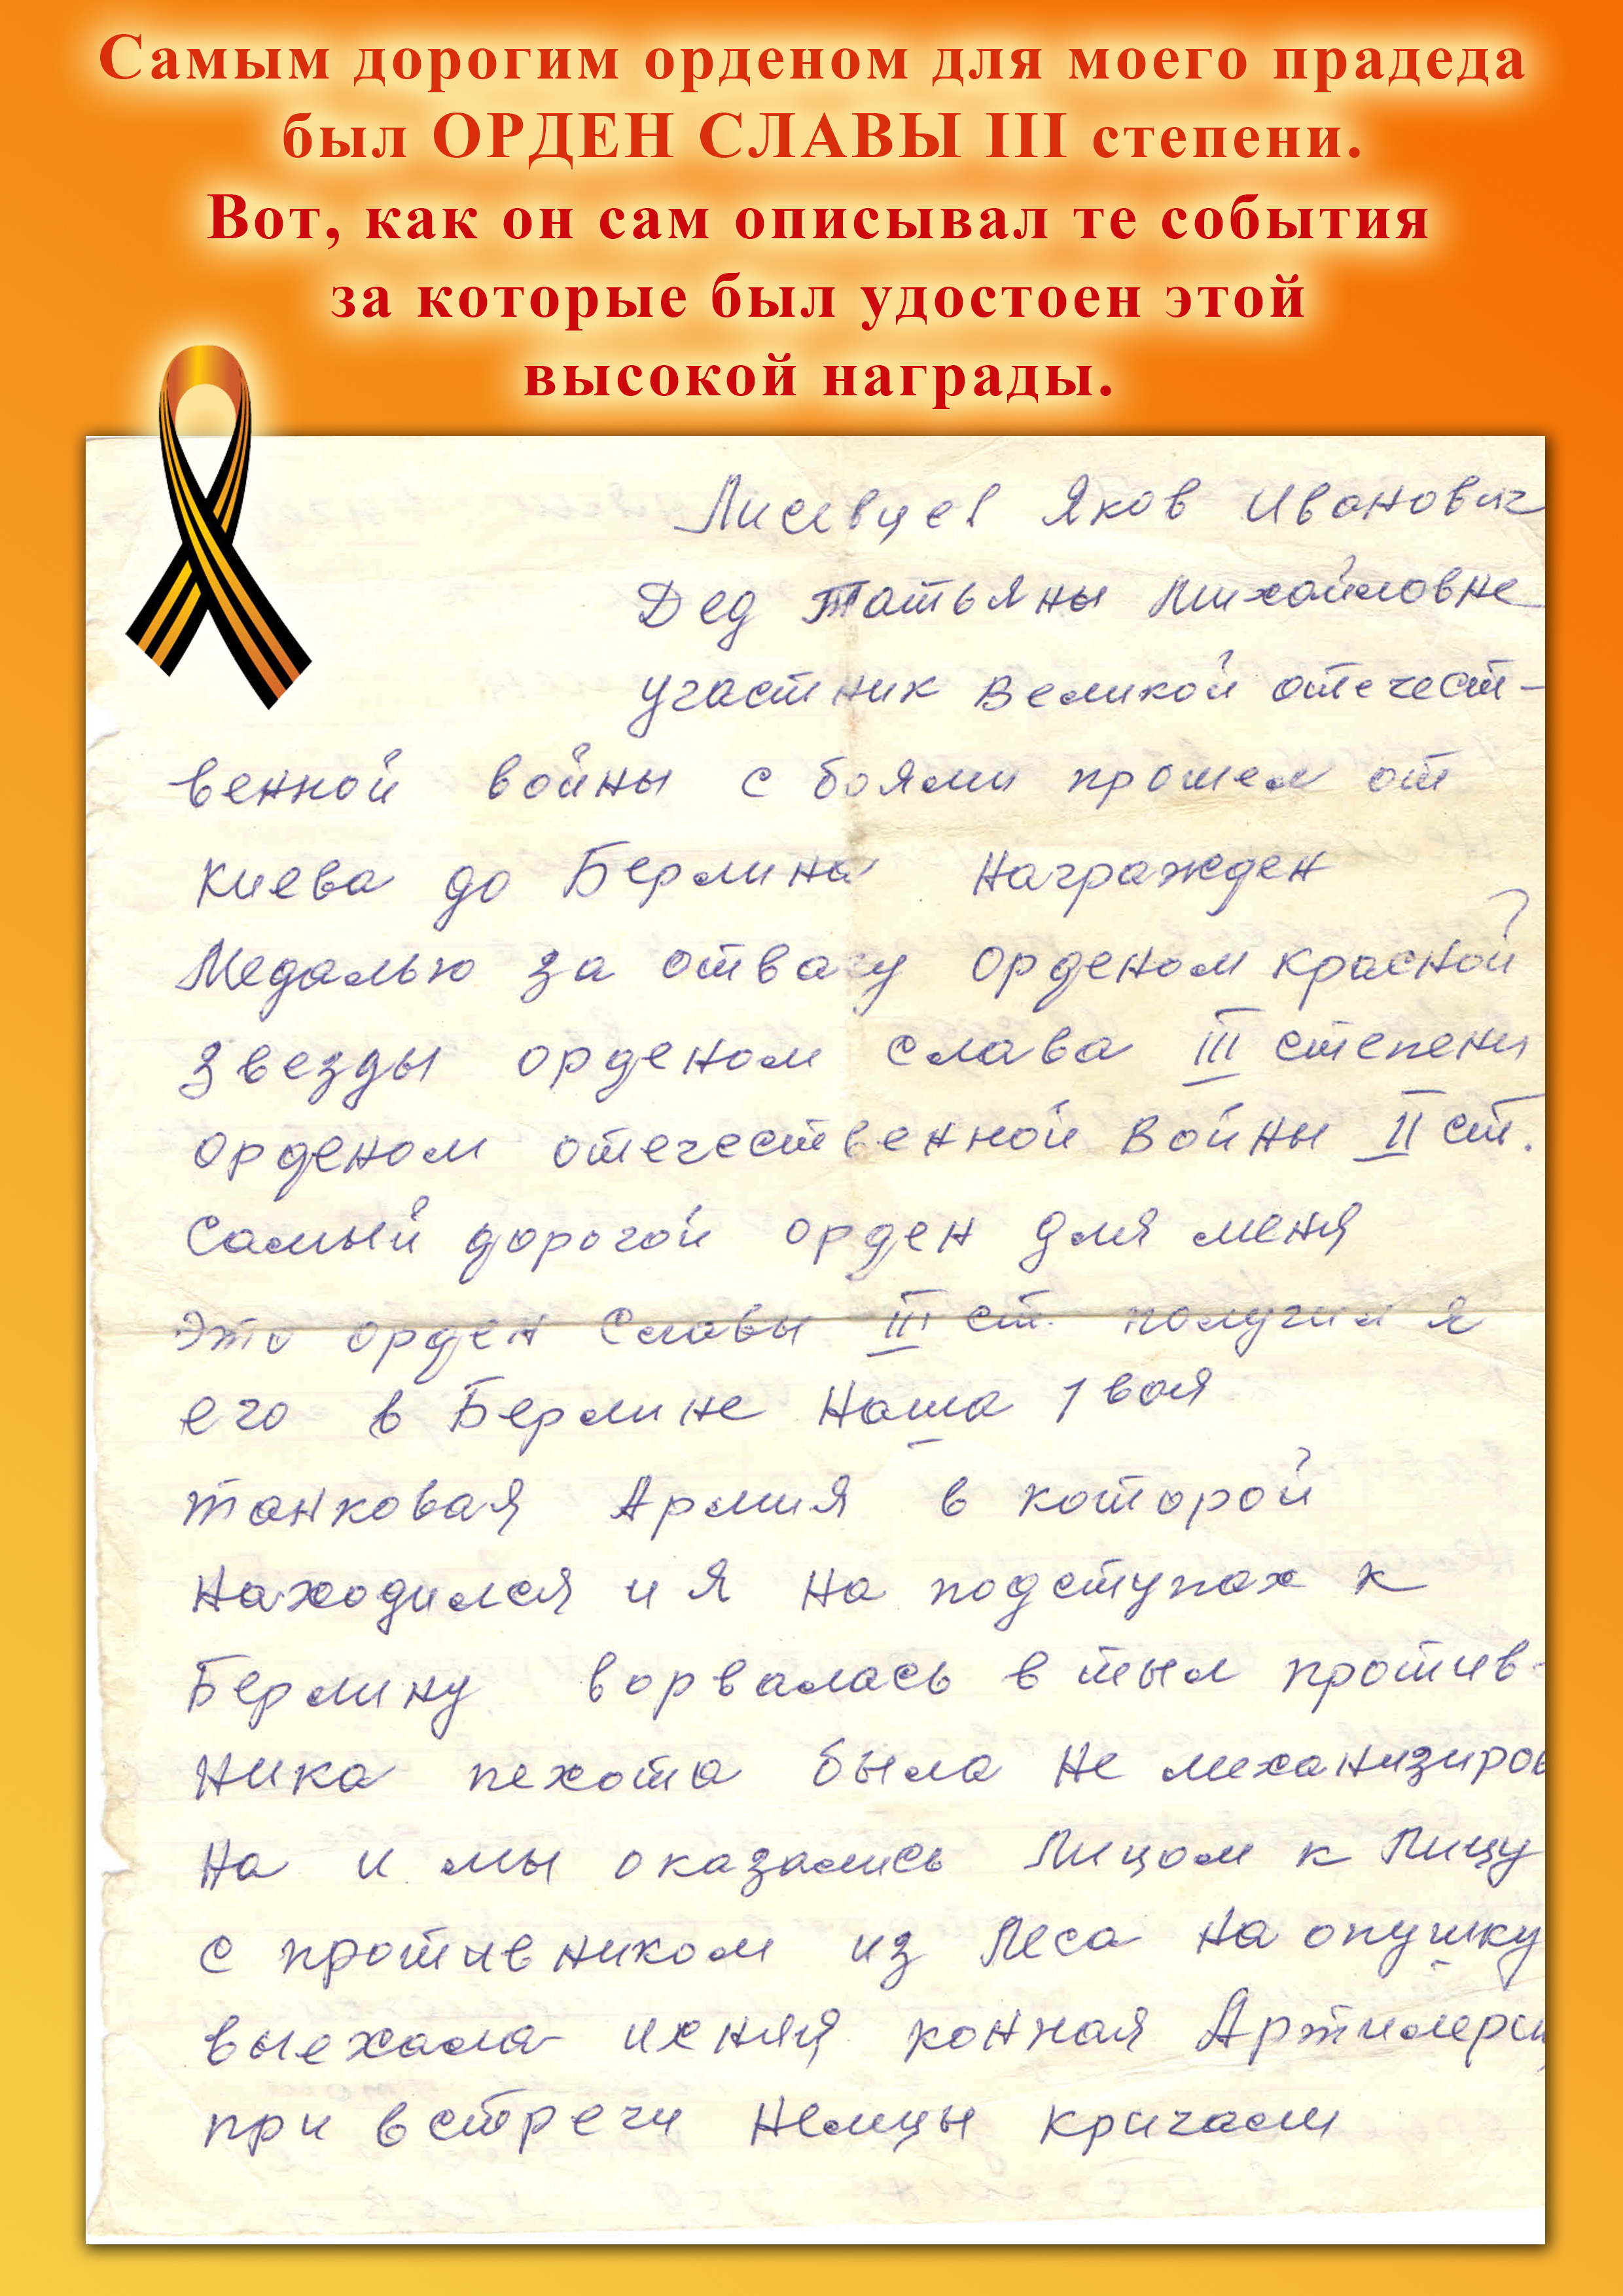 Самым дорогим орденом для моего прадеда
был ОРДЕН СЛАВЫ III степени.
Вот, как он сам описывал те события
за которые был удостоен этой
высокой награды.
Яков Иванович
Дед Татьяны Михайловне
участник Великой отечест-
венной войны с боями прошел от
Киева до Берлина Награжден
Медалью за отвагу орденом красной
звезды орденом слава III степени
орденом отечественной Войны II ст.
Самый дорогой орден для меня
Это орден Славы III ст. получил я
его в Берлине Наша 1 вая
танковая Армия в которой
Находился и Я на подступах к
Берлину ворвалась в тыл против-
ника пехота была не механизиров
на и мы оказались Лицом к Лицу
с противником из Леса на опушку
выехала конная Артилери
при встречи Немцы кричат